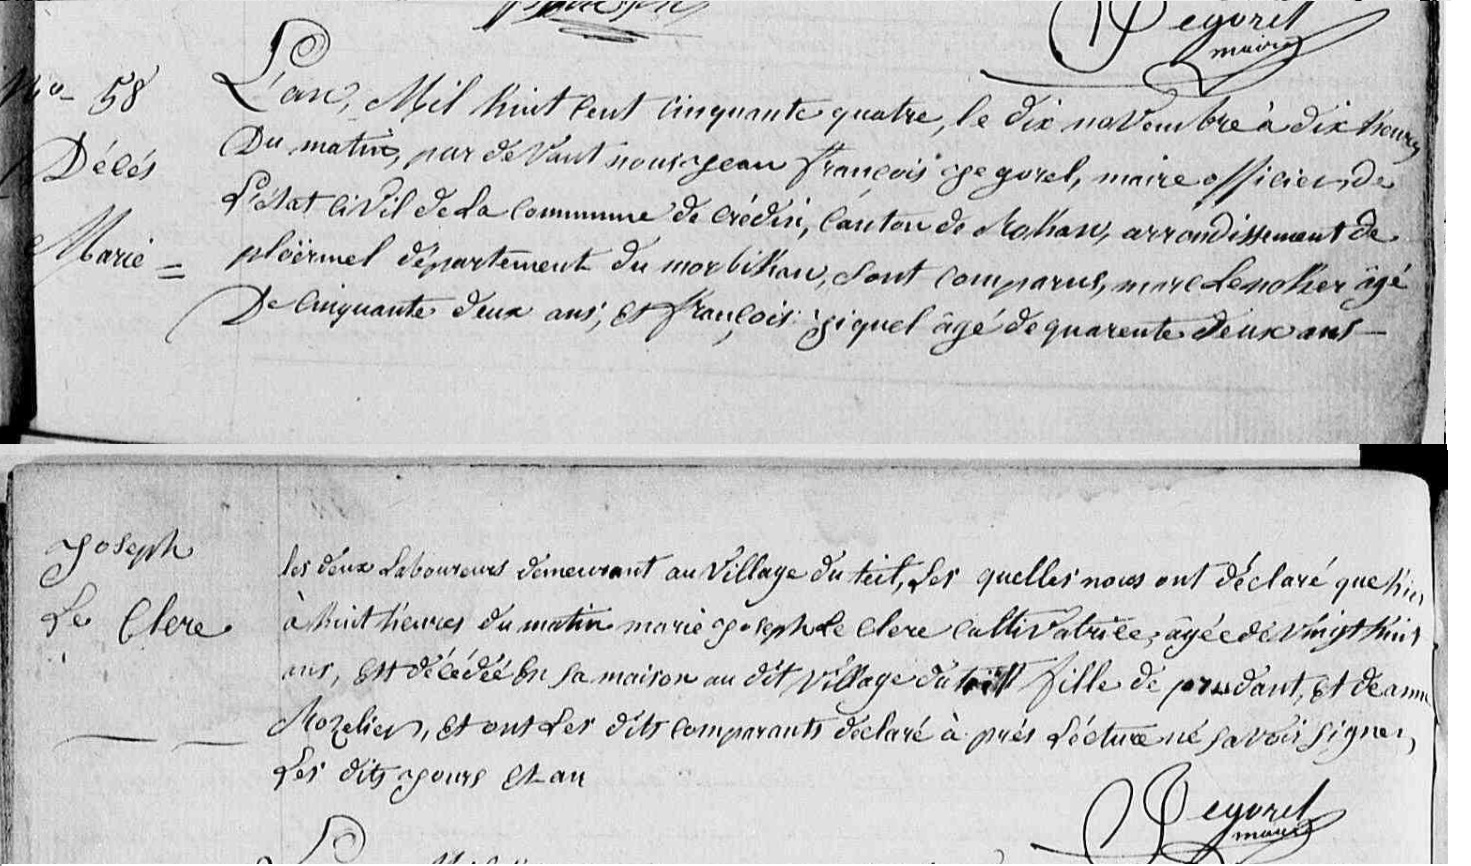 Segorel
maire
No 58
Décés
Marie =
L'an, Mil huit cent cinquante quatre, le dix novembre à dix heures
Du matin, par devant nous jean françois Segorel, maire officier de
L'état civil de la commune de crédin, canton de Rohan, arrondissement de
ploërmel département du morbihan, sont comparus, marc Lenoher âgé
De cinquante deux ans, et françois giquel âgé de quarente deux ans
joseph
Le Clere
les deux Laboureurs demeurant au village du teil, Les quelles nous ont déclaré que hier
à huit heures du matin marie joseph Le Clere cultivatrice, âgée de vingt huit
ans, est décédée en sa maison au dit village du teill fille de prudant, et de anne
Rozelier, et ont Les dits comparants déclaré à prés Lécture ne savoir signer,
Les dits jours et an
Segorel
maire